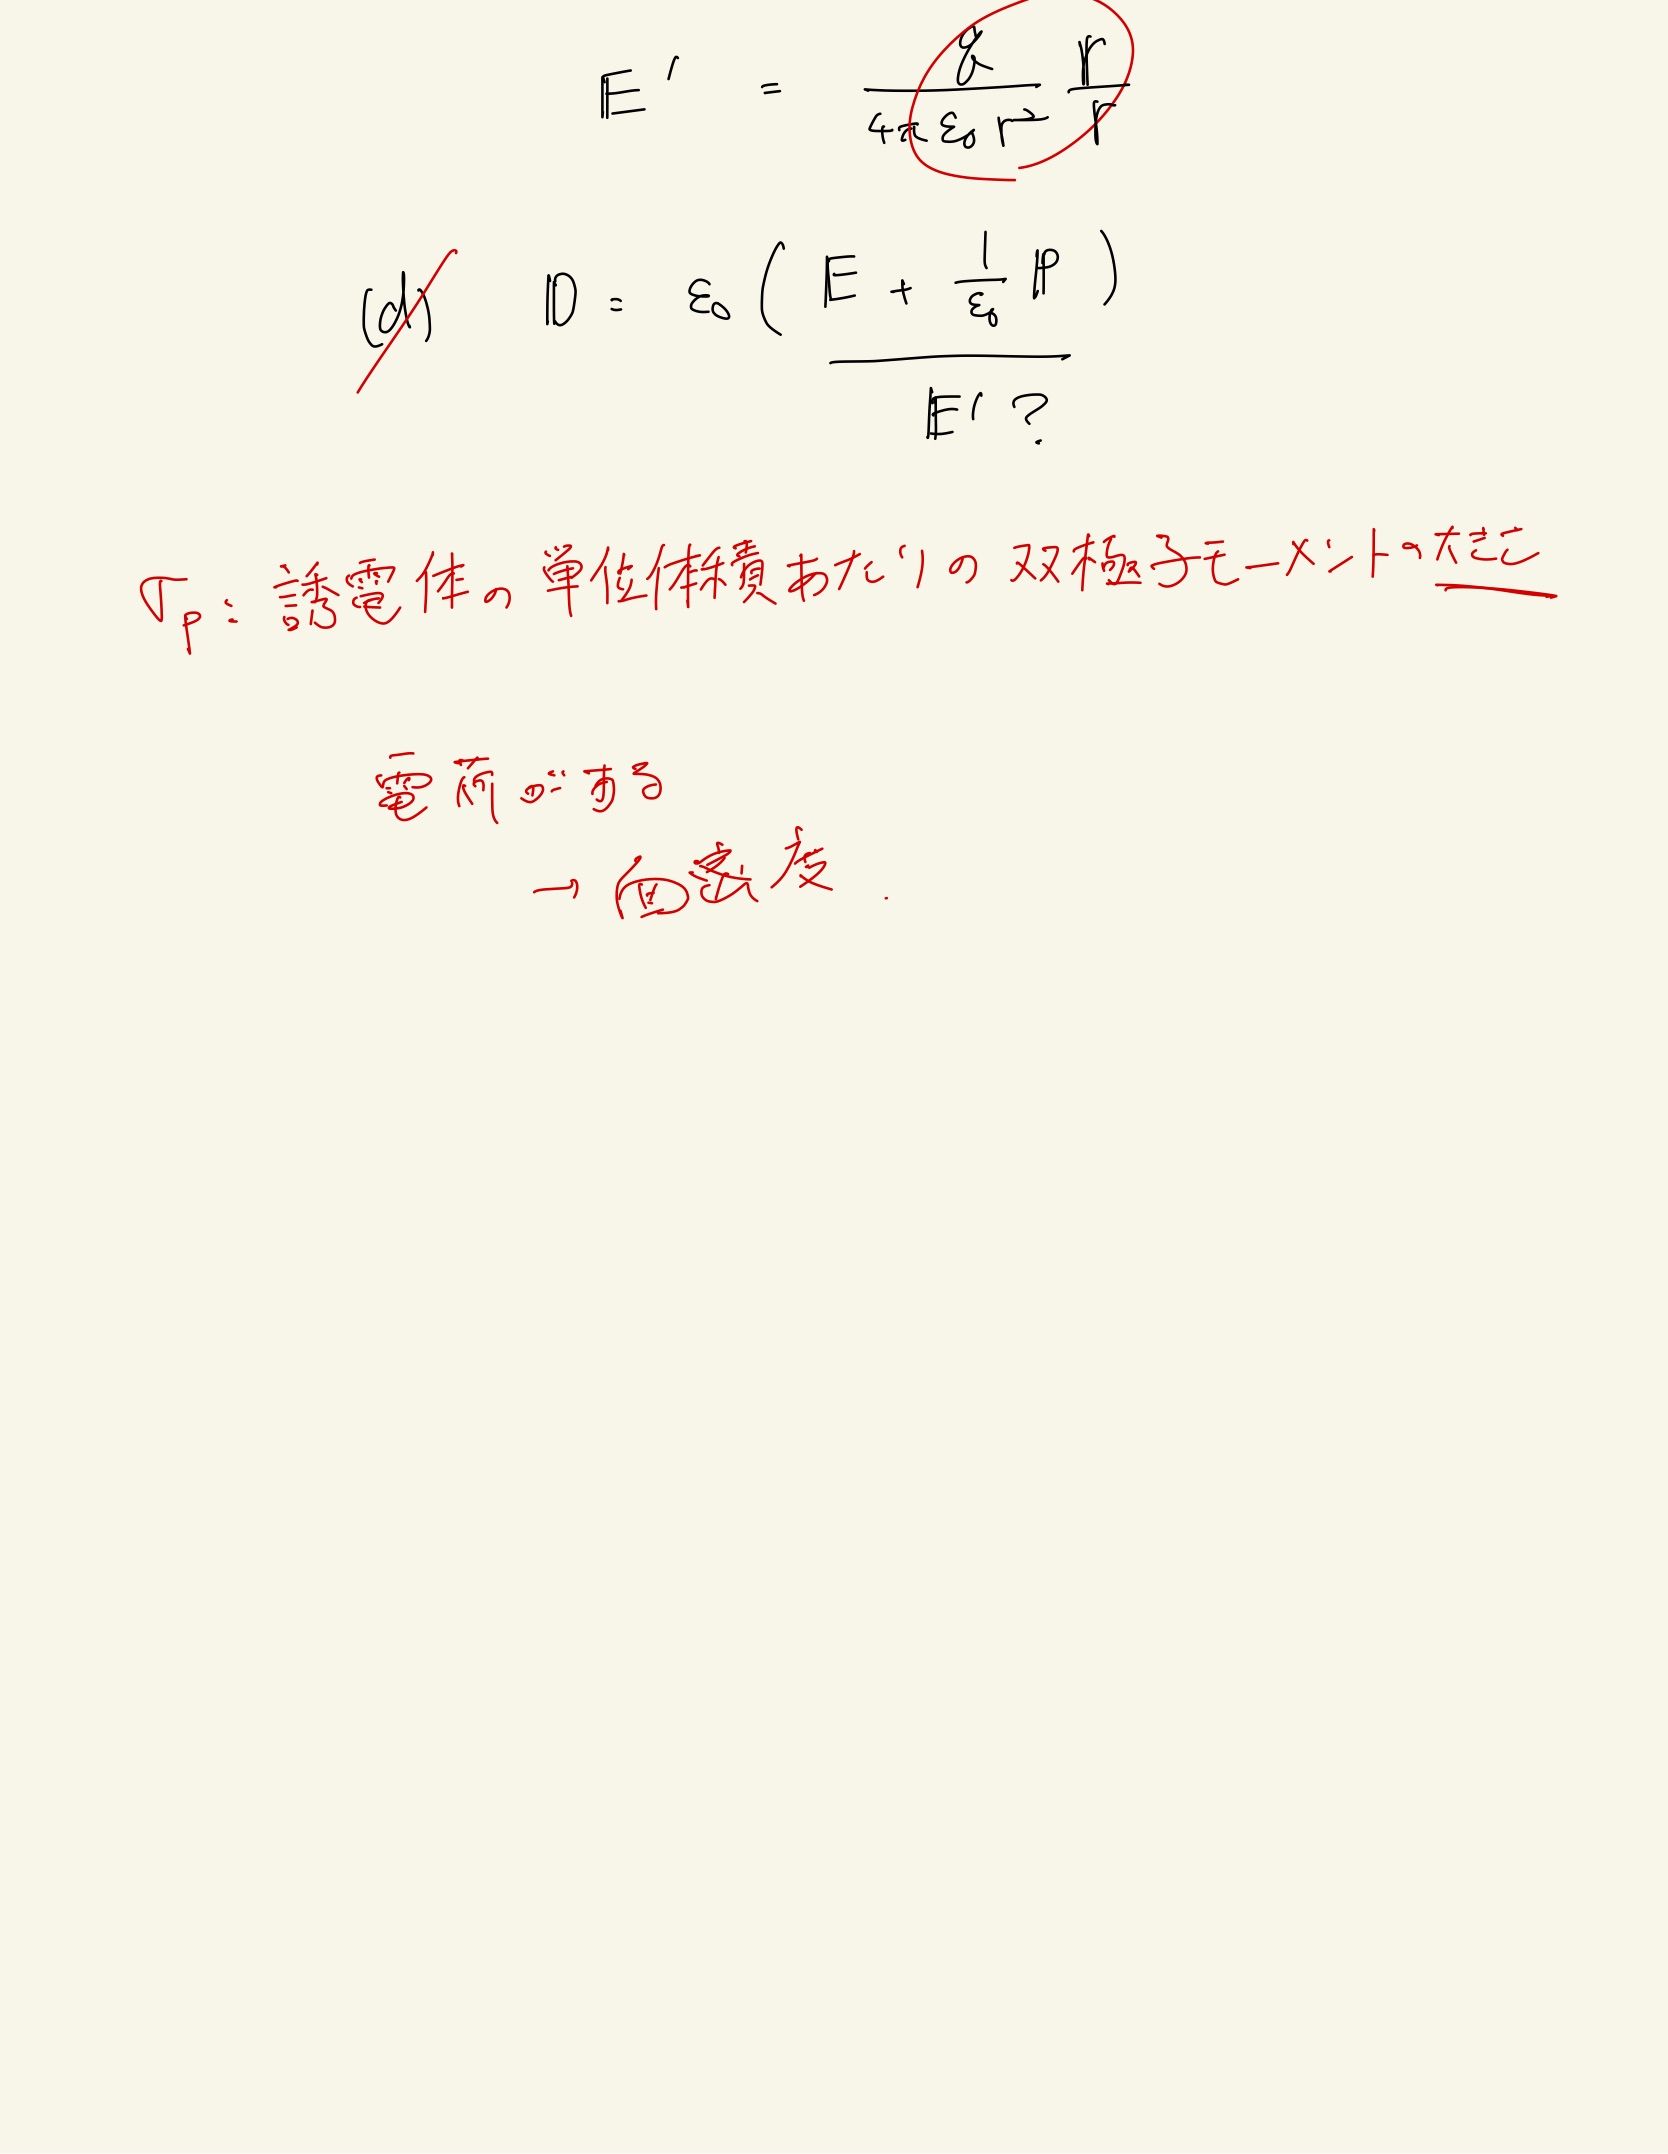 𝔼' = q/(4πε₀r²) 𝕣/r
(d) 𝔻 = ε₀(𝔼 + 1/ε₀ ℙ)
𝔼'?
σp: 誘電体の単位体積あたりの双極子モーメントの大きさ
電荷がある
→ 面密度.